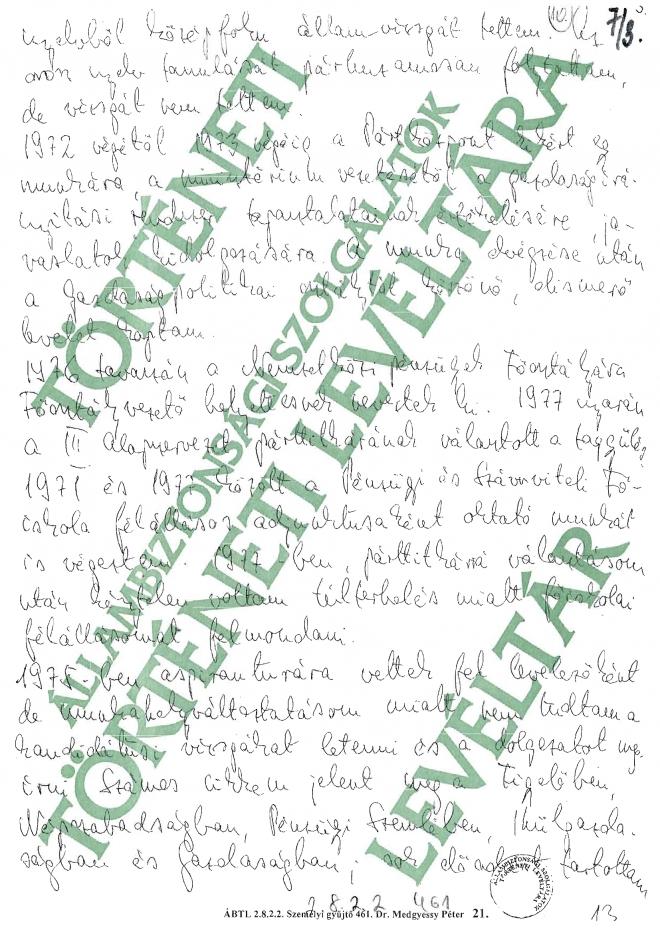 10 7/3.
nyelvből középfokú állam-vizsgát tettem. Az
orosz nyelv tanulását párhuzamosan folytattam,
de vizsgát nem tettem.
1972 végétől 1973 végéig a Pártközpont kikért egy
munkára a minisztérium vezetésétől a gazdaságirá-
nyítási rendszer tapasztalatainak értékelésére, ja-
vaslatok kidolgozására. A munka elvégzése után
a Gazdaságpolitikai osztálytól köszönő, elismerő
levelet kaptam.
1976 tavaszán a Nemzetközi pénzügyek Főosztályára
Főosztályvezető helyettesnek neveztek ki. 1977 nyarán
a III Alapszervezet párttitkárának választott a taggyűlés
1971 és 1977 között a Pénzügyi és Számviteli Fő-
iskola félállásos adjunktusaként oktató munkát
is végeztem. 1977-ben, párttitkárrá választásom
után kénytelen voltam túlterhelés miatt főiskolai
félállásomat felmondani.
1975-ben aspirantúrára vettek fel levelezőként
de munkahelyváltoztatásom miatt nem tudtam a
kandidátusi vizsgákat letenni és a dolgozatot meg-
írni. Számos cikkem jelent meg a Figyelőben,
Népszabadságban, Pénzügyi Szemlében, Külgazda-
ságban és Gazdaságban, sok előadást tartottam
2 8 2 2 461
ÁBTL 2.8.2.2. Személyi gyűjtő 461. Dr. Medgyessy Péter 21.
13
ÁLLAMBIZTONSÁGI SZOLGÁLATOK
TÖRTÉNETI LEVÉLTÁRA
TÖRTÉNETI
LEVÉLTÁR